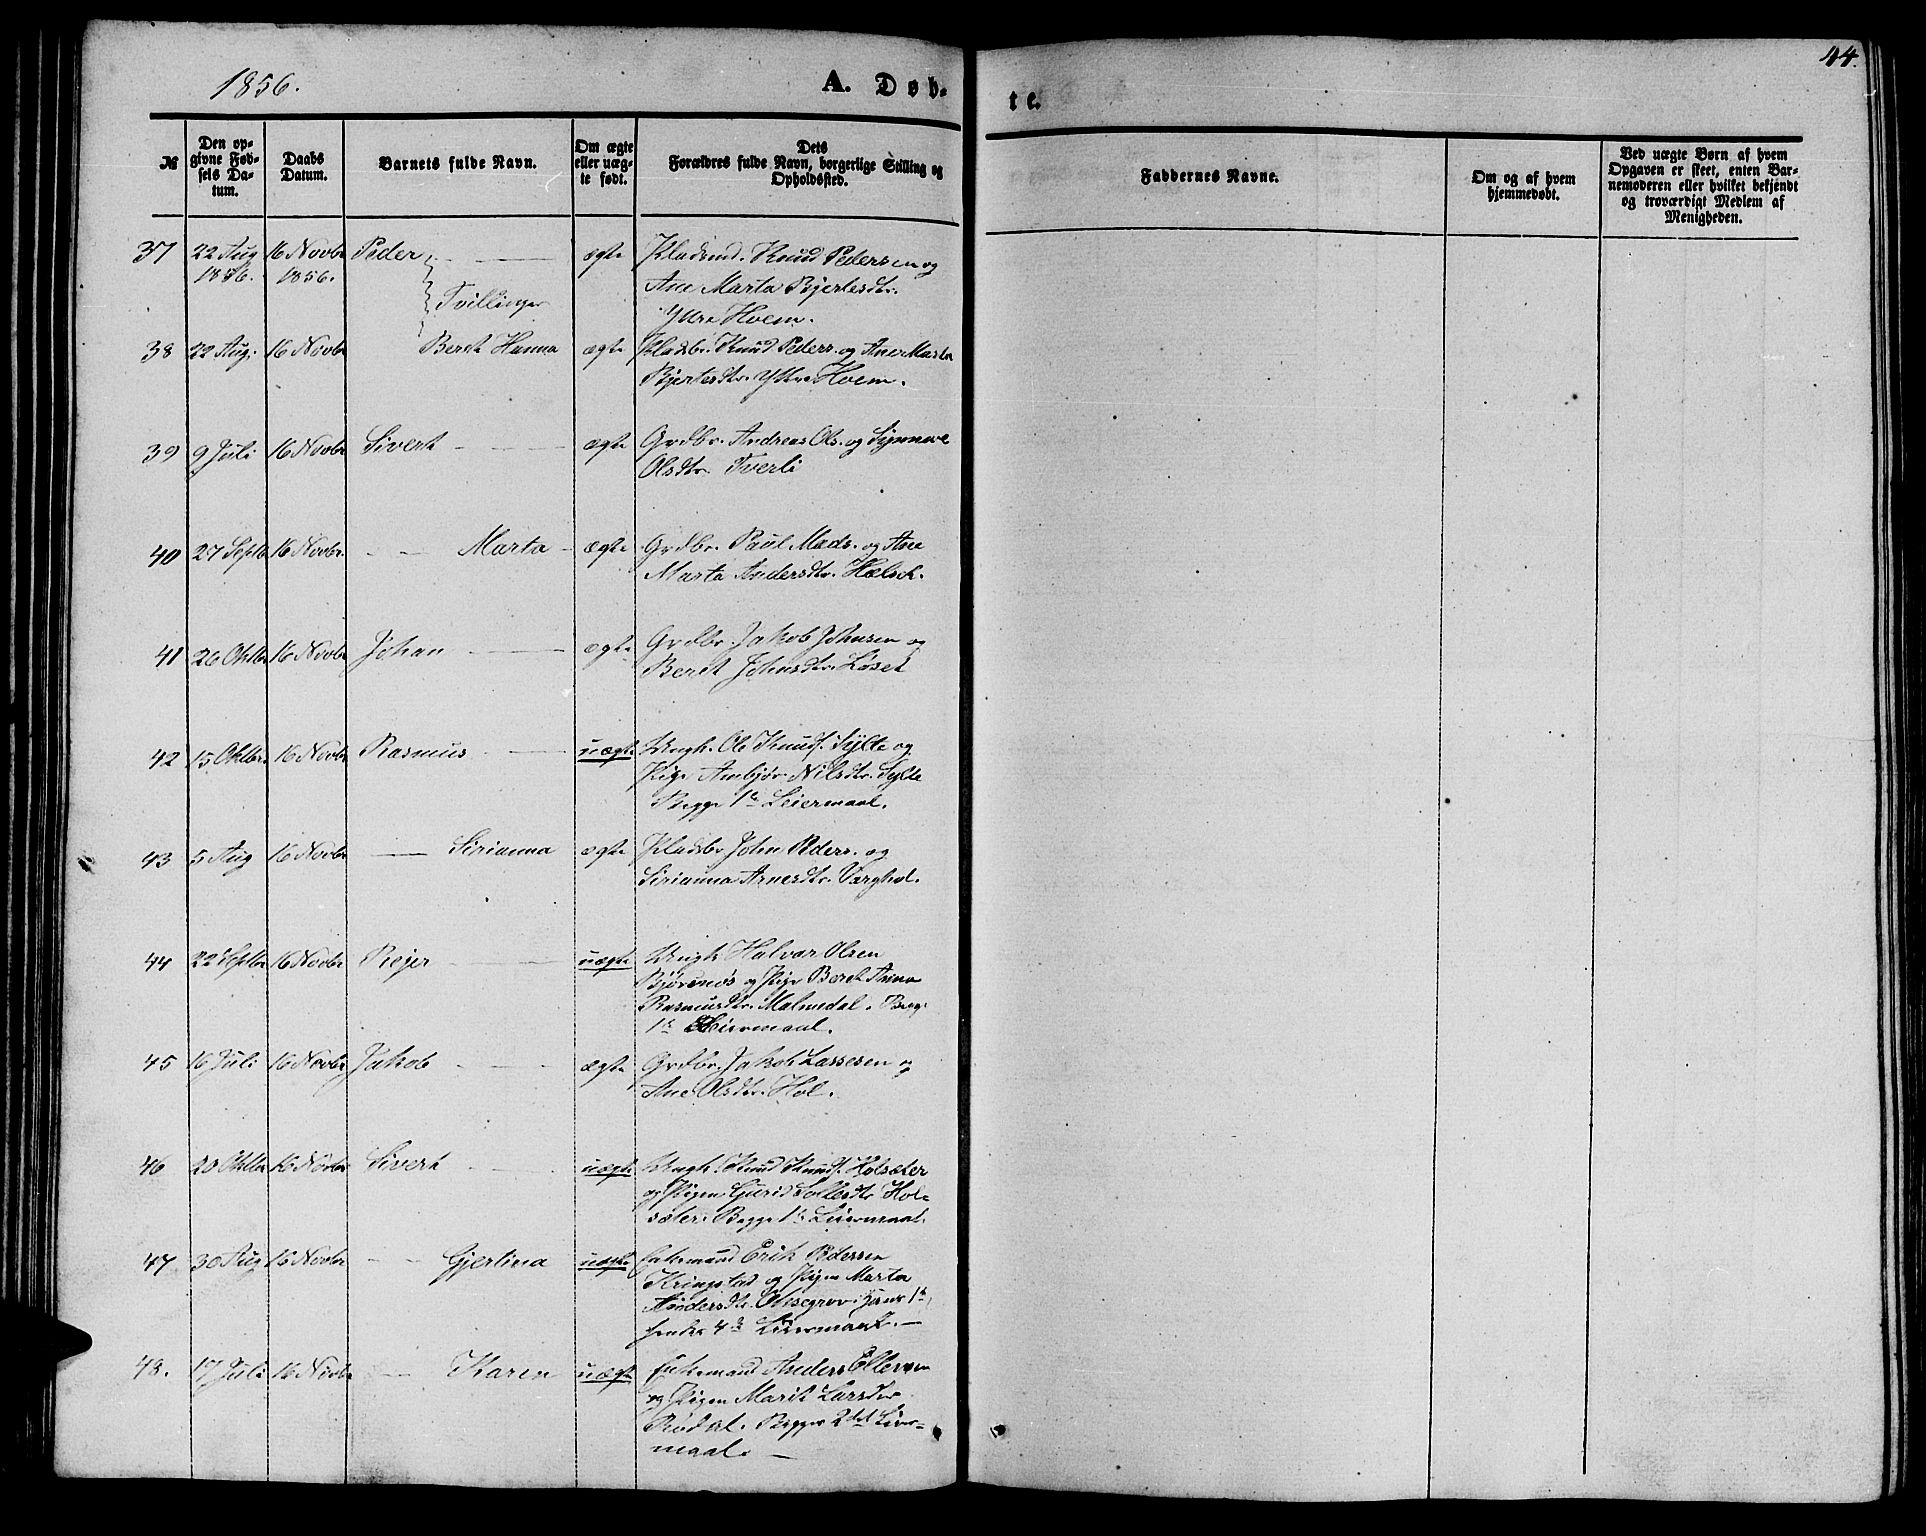 1856.
A. Døb-
te.
44.
№
Den op-
givne Fød-
sels Da-
tum.
Daabs
Datum.
Barnets fulde Navn.
Om ægte
eller uæg-
te født.
Dets
Forældres fulde Navn, borgerlige Stilling og
Opholdssted.
Faddernes Navne.
Om og af hvem
hjemmedøbt.
Ved uægte Børn af hvem
Opgaven er skeet, enten Bar-
nemoderen eller hvilket bekjendt
og troværdigt Medlem af
Menigheden.
37 22 Aug 16 Novbr Peder ægte Pladsmd. Knud Pedersen og
1856. 1856. Ane Marta Bjertesdtr.
Tvillinger Ytre Hoem.
38 22 Aug. 16 Novbr Beret Hanna ægte Pladsbr. Knud Peders. og Ane Marta
Bjertesdtr. Ytre Hoem.
39 9 Juli 16 Novbr Sivert ægte Grdbr. Andreas Ols. og Synneve
Olsdtr. Tverli
40 27 Septb 16 Novbr. Marta ægte Grdbr. Paul Mads. og Ane
Marta Andersdtr. Hælsek.
41 26 Oktbr 16 Novbr Johan ægte Grdbr. Jakob Johnsen og
Beret Johnsdtr. Løset
42 15 Oktbr. 16 Novbr Rasmus uægte Ungk. Ole Knuds. Sylte og
Pige Ambjør Nilsdtr. Sylte
Begge 1ste Leiermaal.
43 5 Aug 16 Novbr Sirianna ægte Pladsbr John Peders. og
Sirianna Arnesdtr. Varghol.
44 22 Septbr 16 Novbr Rejer uægte Ungk Halvar Olsen
Bjørsnøs og Pige Beret Anna
Rasmusdtr. Malmedal. Begg.
1ste Leiermaal.
45 16 Juli 16 Novbr Jakob ægte Grdbr. Jakob Lassesen og
Ane Olsdtr. Hol.
46 20 Oktbr 16 Novbr Sivert uægte Ungk. Knud Knuds. Holsæter
og Pigen Gurid Tollesdtr Hol-
sæter. Begge 1ste Leiermaal.
47 30 Aug 16 Novbr Gjertina uægte Enkemand Erik Pedersen
Kringstad og Pigen Marta
Andersdtr. Hans 1ste,
hendes 4de Leiermaal.
48. 17 Juli 16 Novbr Karen uægte Enkemand Anders Ellevsen
og Pigen Marit Larsdtr
Rødal. Begges 2det Leier-
maal.